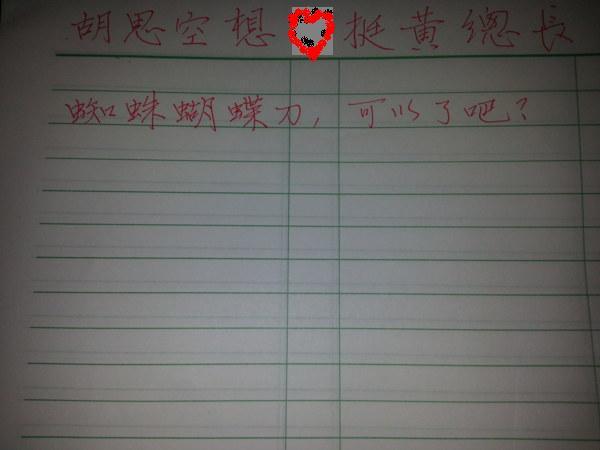 胡思空想❤挺黃總長
蜘蛛蝴蝶刀，可以了吧？